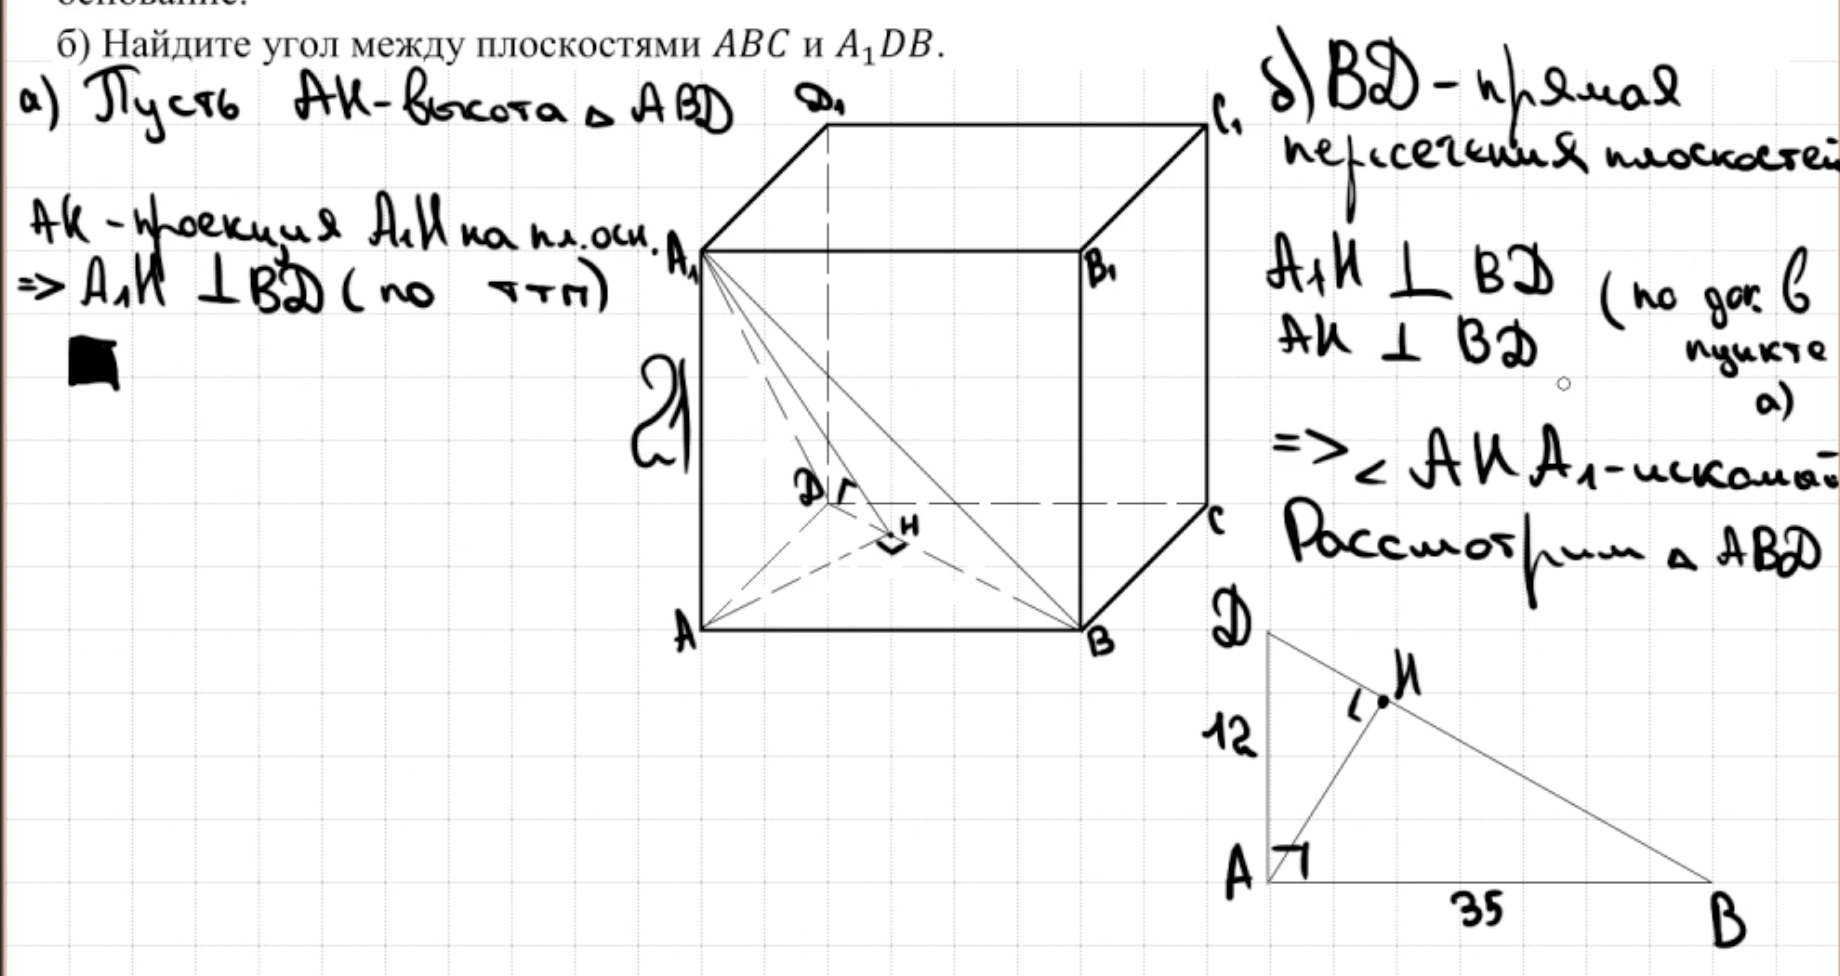 основание.
б) Найдите угол между плоскостями ABC и A₁DB.
а) Пусть AH-высота △ ABD
AH - проекция A₁H на пл. осн.
=> A₁H ⊥ BD ( по ттп)
D₁
C₁
A₁
B₁
21
D
H
C
A
B
б) BD - прямая
пересечения плоскостей
A₁H ⊥ BD (по док. в
AH ⊥ BD пункте
а)
=> < AHA₁-искомый
Рассмотрим △ ABD
D
H
12
A
35
B